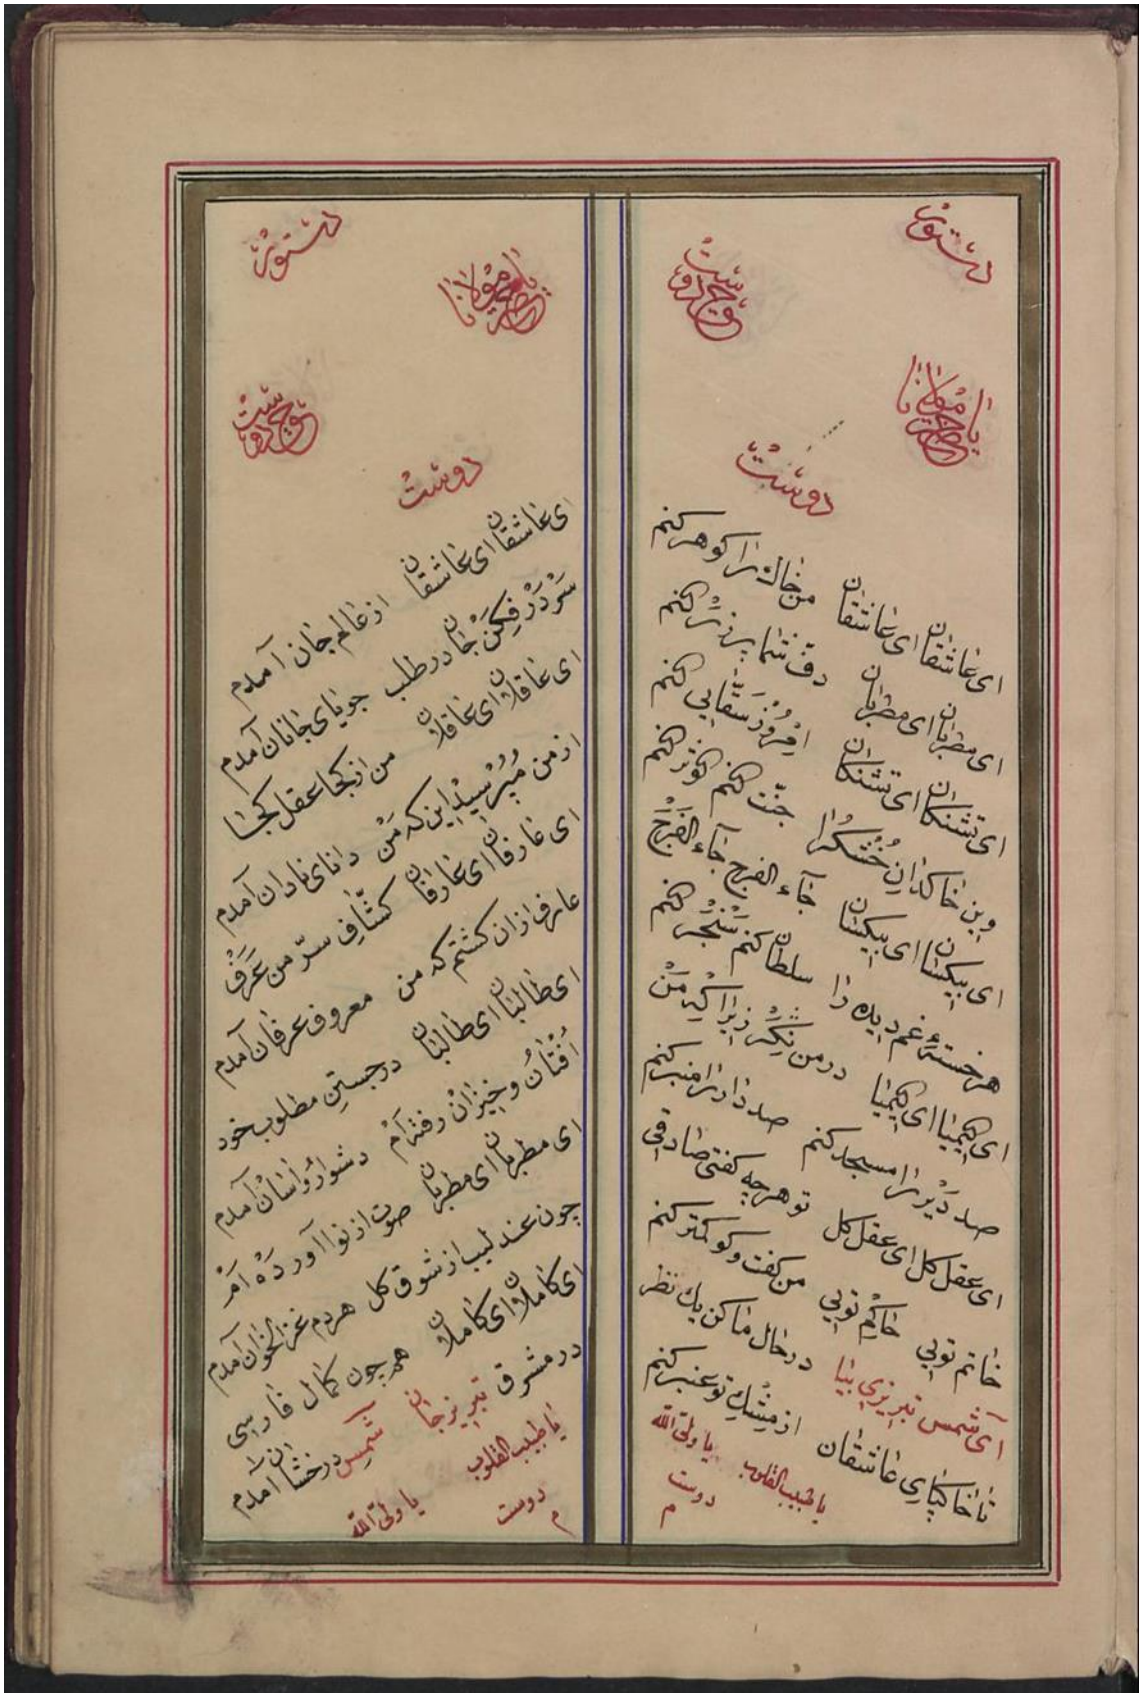 دستور
حق دوست
یا حضرت مولانا
دوست
ای عاشقان ای عاشقان من خاك را كوهر كنم
ای مطربان ای مطربان دف شما پر زر كنم
ای تشنكان ای تشنكان امروز سقایی كنم
وین خاكدان خشك را جنت كنم كوثر كنم
ای بیكسان ای بیكسان جاء الفرج جاء الفرج
هر خستهٔ غم دیده را سلطان كنم سنجر كنم
ای كیمیا ای كیمیا در من نكر زیرا كه من
صد دیر را مسجد كنم صد دار را منبر كنم
ای عقل كل ای عقل كل تو هر چه كفتی صادقی
حاتم تویی حاكم تویی من كفت و كو كمتر كنم
ای شمس تبریزی بیا در حال ما كن یك نظر
تا خاكپای عاشقان از مشك تو عنبر كنم
یا طبیب القلوب یا ولی الله
دوست
م
دستور
یا حضرت مولانا
حق دوست
دوست
ای عاشقان ای عاشقان از عالم جان آمدم
سر در فكن جان در طلب جویای جانان آمدم
ای عاقلان ای عاقلان من از كجا عقل كجا
از من مپرسید این كه من دانای نادان آمدم
ای عارفان ای عارفان كشاف سر من عرف
عارف از ان كشتم كه من معروف عرفان آمدم
ای طالبان ای طالبان در جستن مطلوب خود
افتان و خیزان رفته‌ام دشوار و اسان آمدم
ای مطربان ای مطربان صوت از نوا آورده‌ام
چون عندلیب از شوق كل هر دم غزلخوان آمدم
ای كاملان ای كاملان همچون كمال فارسی
در مشرق تبریز جان شمس درخشان آمدم
یا طبیب القلوب یا ولی الله
دوست
م